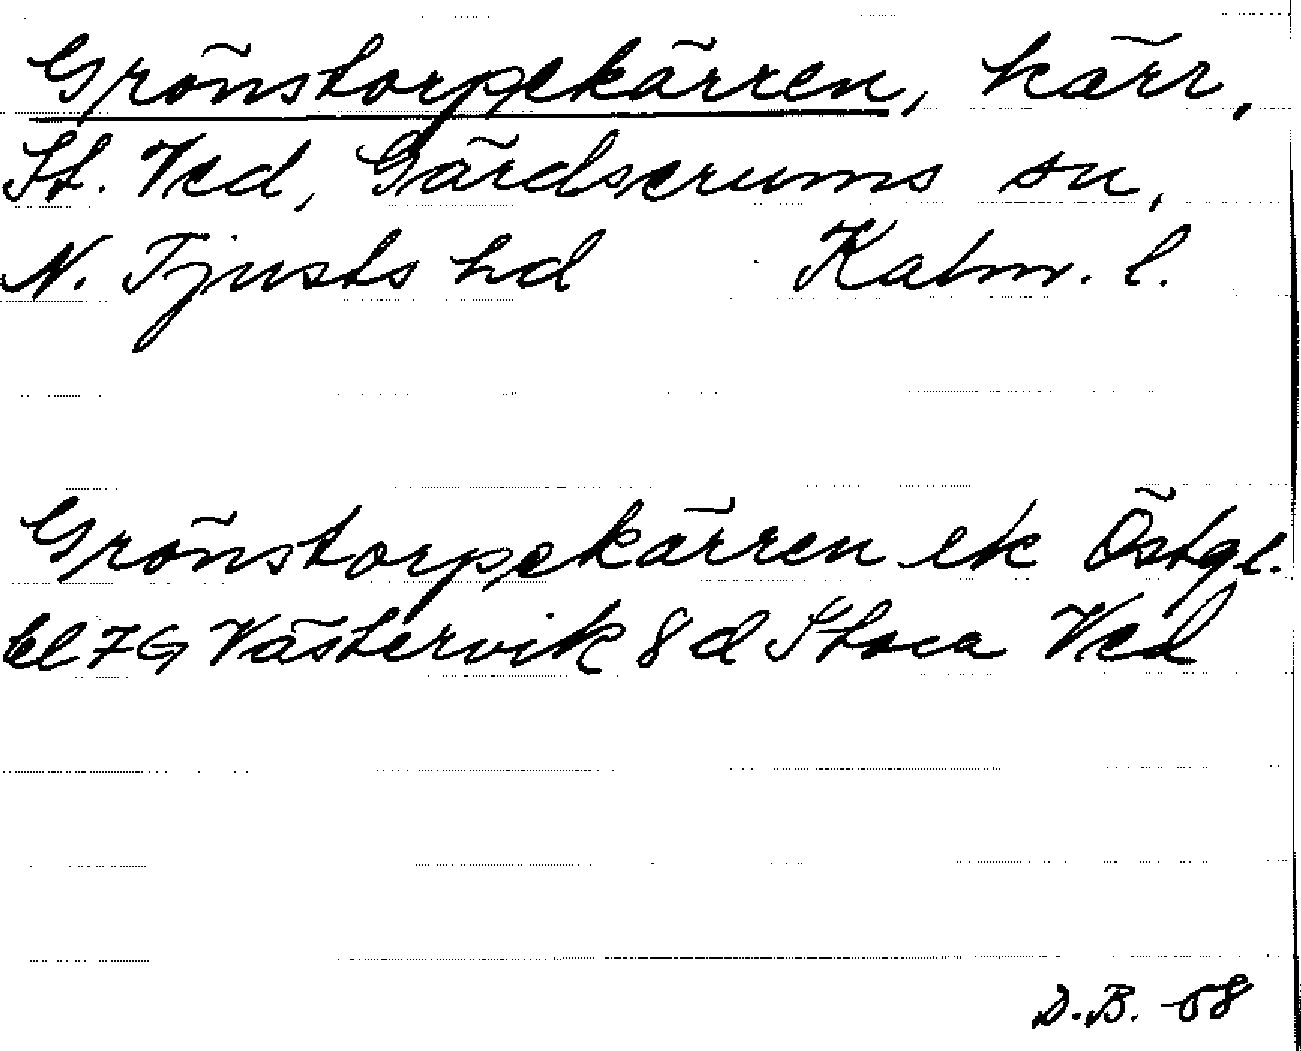 Grönstorpekärren, kärr,
St. Ved, Gärdserums sn,
N. Tjusts hd Kalm. l.
Grönstorpekärren ek Östgl.
bl 7G Västervik 8d Stora Ved
D.B. -58